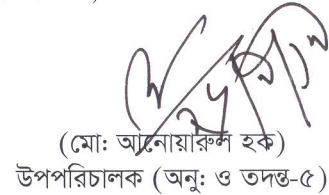 (মো: আনোয়ারুল হক)
উপপরিচালক (অনু: ও তদন্ত-৫)